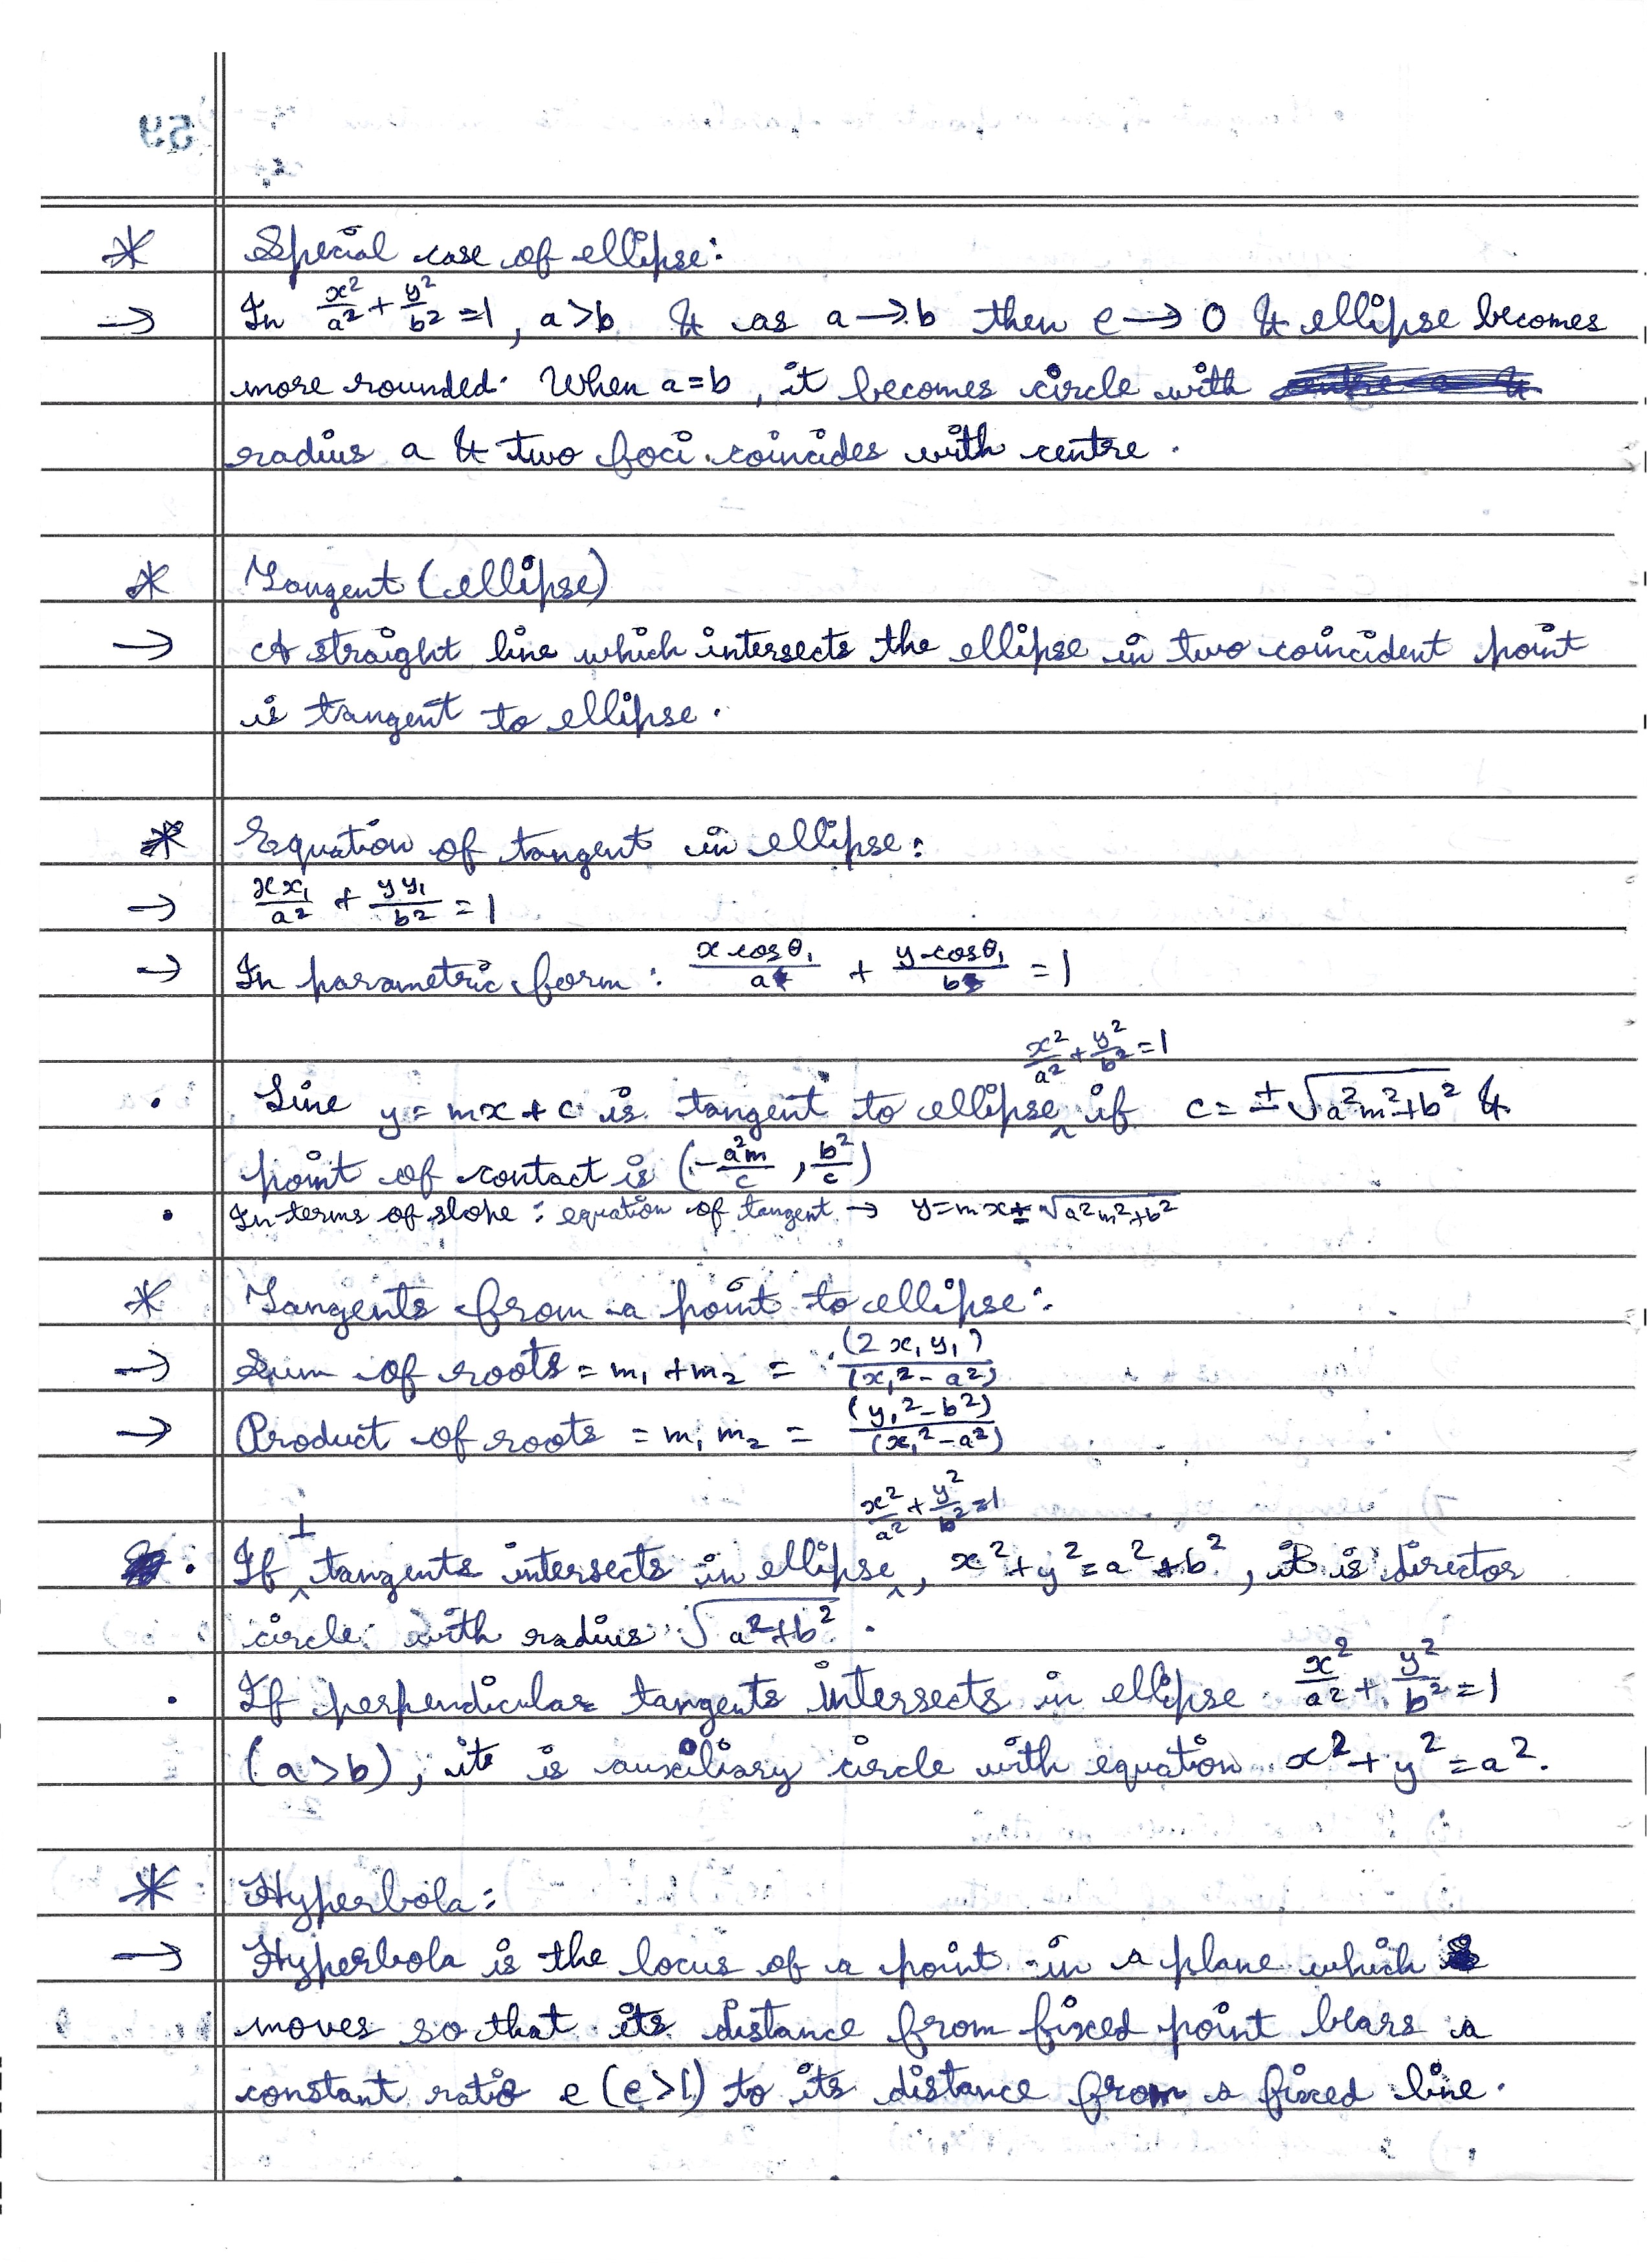 * Special case of ellipse:
→ In x²/a² + y²/b² = 1, a>b & as a → b then e → 0 & ellipse becomes
more rounded. When a=b, it becomes circle with
radius a & two foci coincides with centre.
* Tangent (ellipse)
→ A straight line which intersects the ellipse in two coincident point
is tangent to ellipse.
* Equation of tangent in ellipse:
→ xx₁/a² + yy₁/b² = 1
→ In parametric form: x cosθ₁/a + y cosθ₁/b = 1
x²/a² + y²/b² = 1
• Line y = mx + c is tangent to ellipse ^ if c = ±√(a²m²+b²) &
point of contact is (-a²m/c, b²/c)
• In terms of slope: equation of tangent → y = mx ± √(a²m²+b²)
* Tangents from a point to ellipse:
→ Sum of roots = m₁ + m₂ = (2x₁y₁)/(x₁²-a²)
→ Product of roots = m₁m₂ = (y₁²-b²)/(x₁²-a²)
x²/a² + y²/b² = 1
⊥
• If ^ tangents intersects in ellipse ^, x²+y²=a²+b², it is director
circle with radius √(a²+b²).
• If perpendicular tangents intersects in ellipse x²/a² + y²/b² = 1
(a>b), it is auxiliary circle with equation x²+y²=a².
* Hyperbola:
→ Hyperbola is the locus of a point in a plane which
moves so that its distance from fixed point bears a
constant ratio e (e>1) to its distance from a fixed line.